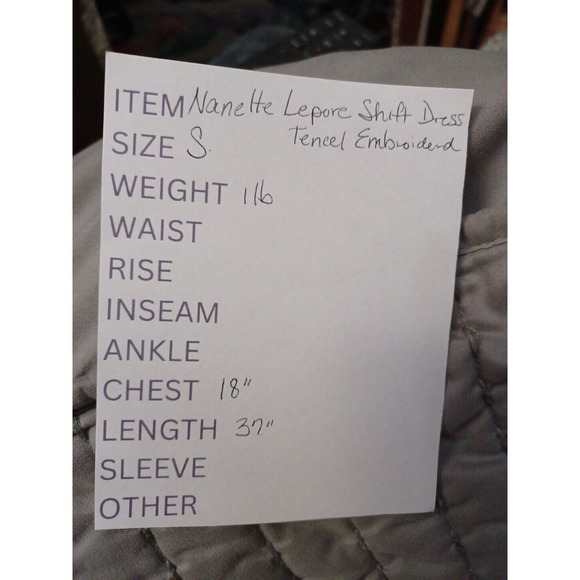 ITEM Nanette Lepore Shift Dress
Tencel Embroidered
SIZE S.
WEIGHT 1 lb
WAIST
RISE
INSEAM
ANKLE
CHEST 18"
LENGTH 37"
SLEEVE
OTHER